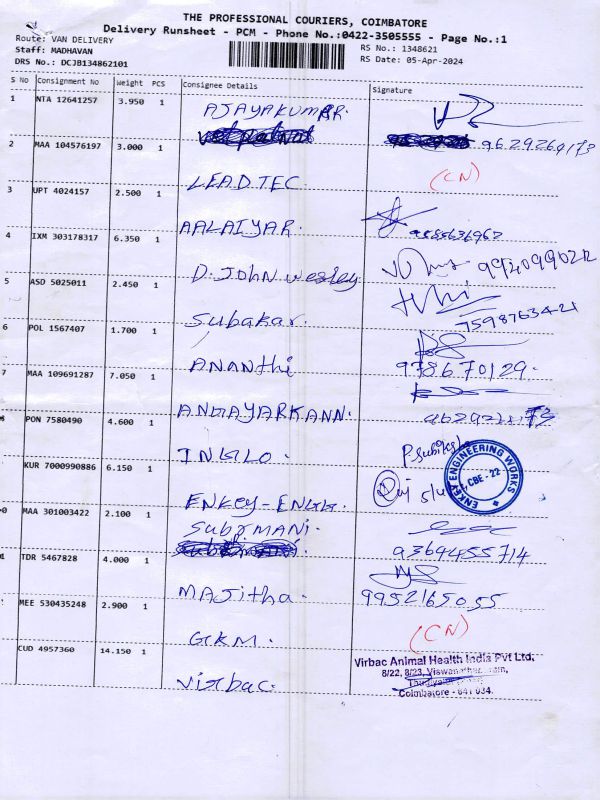 THE PROFESSIONAL COURIERS, COIMBATORE
Delivery Runsheet - PCM - Phone No.:0422-3505555 - Page No.:1
Route: VAN DELIVERY
Staff: MADHAVAN
DRS No.: DCJB134862101
RS No.: 1348621
RS Date: 05-Apr-2024
S No Consignment No Weight PCS Consignee Details Signature
1 NTA 12641257 3.950 1 AJAYAKUMAR.
2 MAA 104576197 3.000 1 LEADTEC. (CN)
3 UPT 4024157 2.500 1 AALAIYAR.
4 IXM 303178317 6.350 1 D. John wesley
5 ASD 5025011 2.450 1 Subakar. 7598763421
6 POL 1567407 1.700 1 ANANthi 978670129.
7 MAA 109691287 7.050 1 ANGAYARKANN.
8 PON 7580490 4.600 1 INGLO.
KUR 7000990886 6.150 1 ENKEY-ENGG.
ENKEY ENGINEERING WORKS CBE - 22
0 MAA 301003422 2.100 1 SUBRMANI. 9364455714
1 TDR 5467828 4.000 1 MAJitha. 9952165055
MEE 530435248 2.900 1 GKM. (CN)
CUD 4957360 14.150 1 Virbac.
Virbac Animal Health India Pvt Ltd.
8/22, 8/23,
Coimbatore - 641 034.